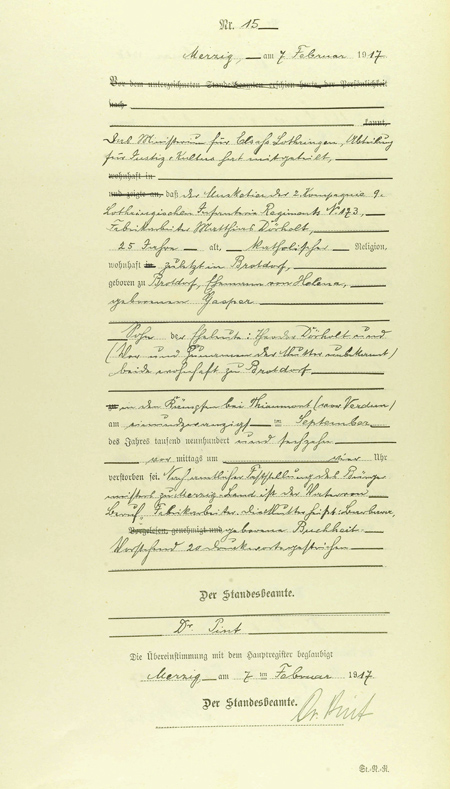 Nr. 15
Merzig, am 7 Februar 1917
Vor dem unterzeichneten Standesbeamten erschien heute, der Persönlichkeit
nach
kannt,
Das Ministerium für Elsaß Lothringen, Abteilung
für Justiz u Kultus hat mitgeteilt,
wohnhaft in
und zeigte an, daß der Musketier der 2 Kompagnie 9.
Lothringischen Infanterie Regiments N. 173,
Fabrikarbeiter Matthias Dörholt,
25 Jahre alt, katholischer Religion,
wohnhaft in zuletzt in Brotdorf,
geboren zu Brotdorf, Ehemann von Helena,
geborenen Gasper
Sohn der Eheleute: Theodor Dörholt und
(Vor und Zunamen der Mutter unbekannt)
beide wohnhaft zu Brotdorf
in den Kämpfen bei Thiaumont (vor Verdun)
am einundzwanzigsten September
des Jahres tausend neunhundert und sechzehn
vor mittags um vier Uhr
verstorben sei. Nach amtlicher Feststellung des Bürger
meisters zu Merzig-Land ist der Vater von
Beruf Fabrikarbeiter. die Mutter heißt: Barbara,
Vorgelesen, genehmigt und geborene Buchheit
Vorstehend 20 Druckworte gestrichen
Der Standesbeamte.
Dr Pint
Die Übereinstimmung mit dem Hauptregister beglaubigt
Merzig am 7 ten Februar 1917
Der Standesbeamte.
Dr. Pint
St.-R.-R.